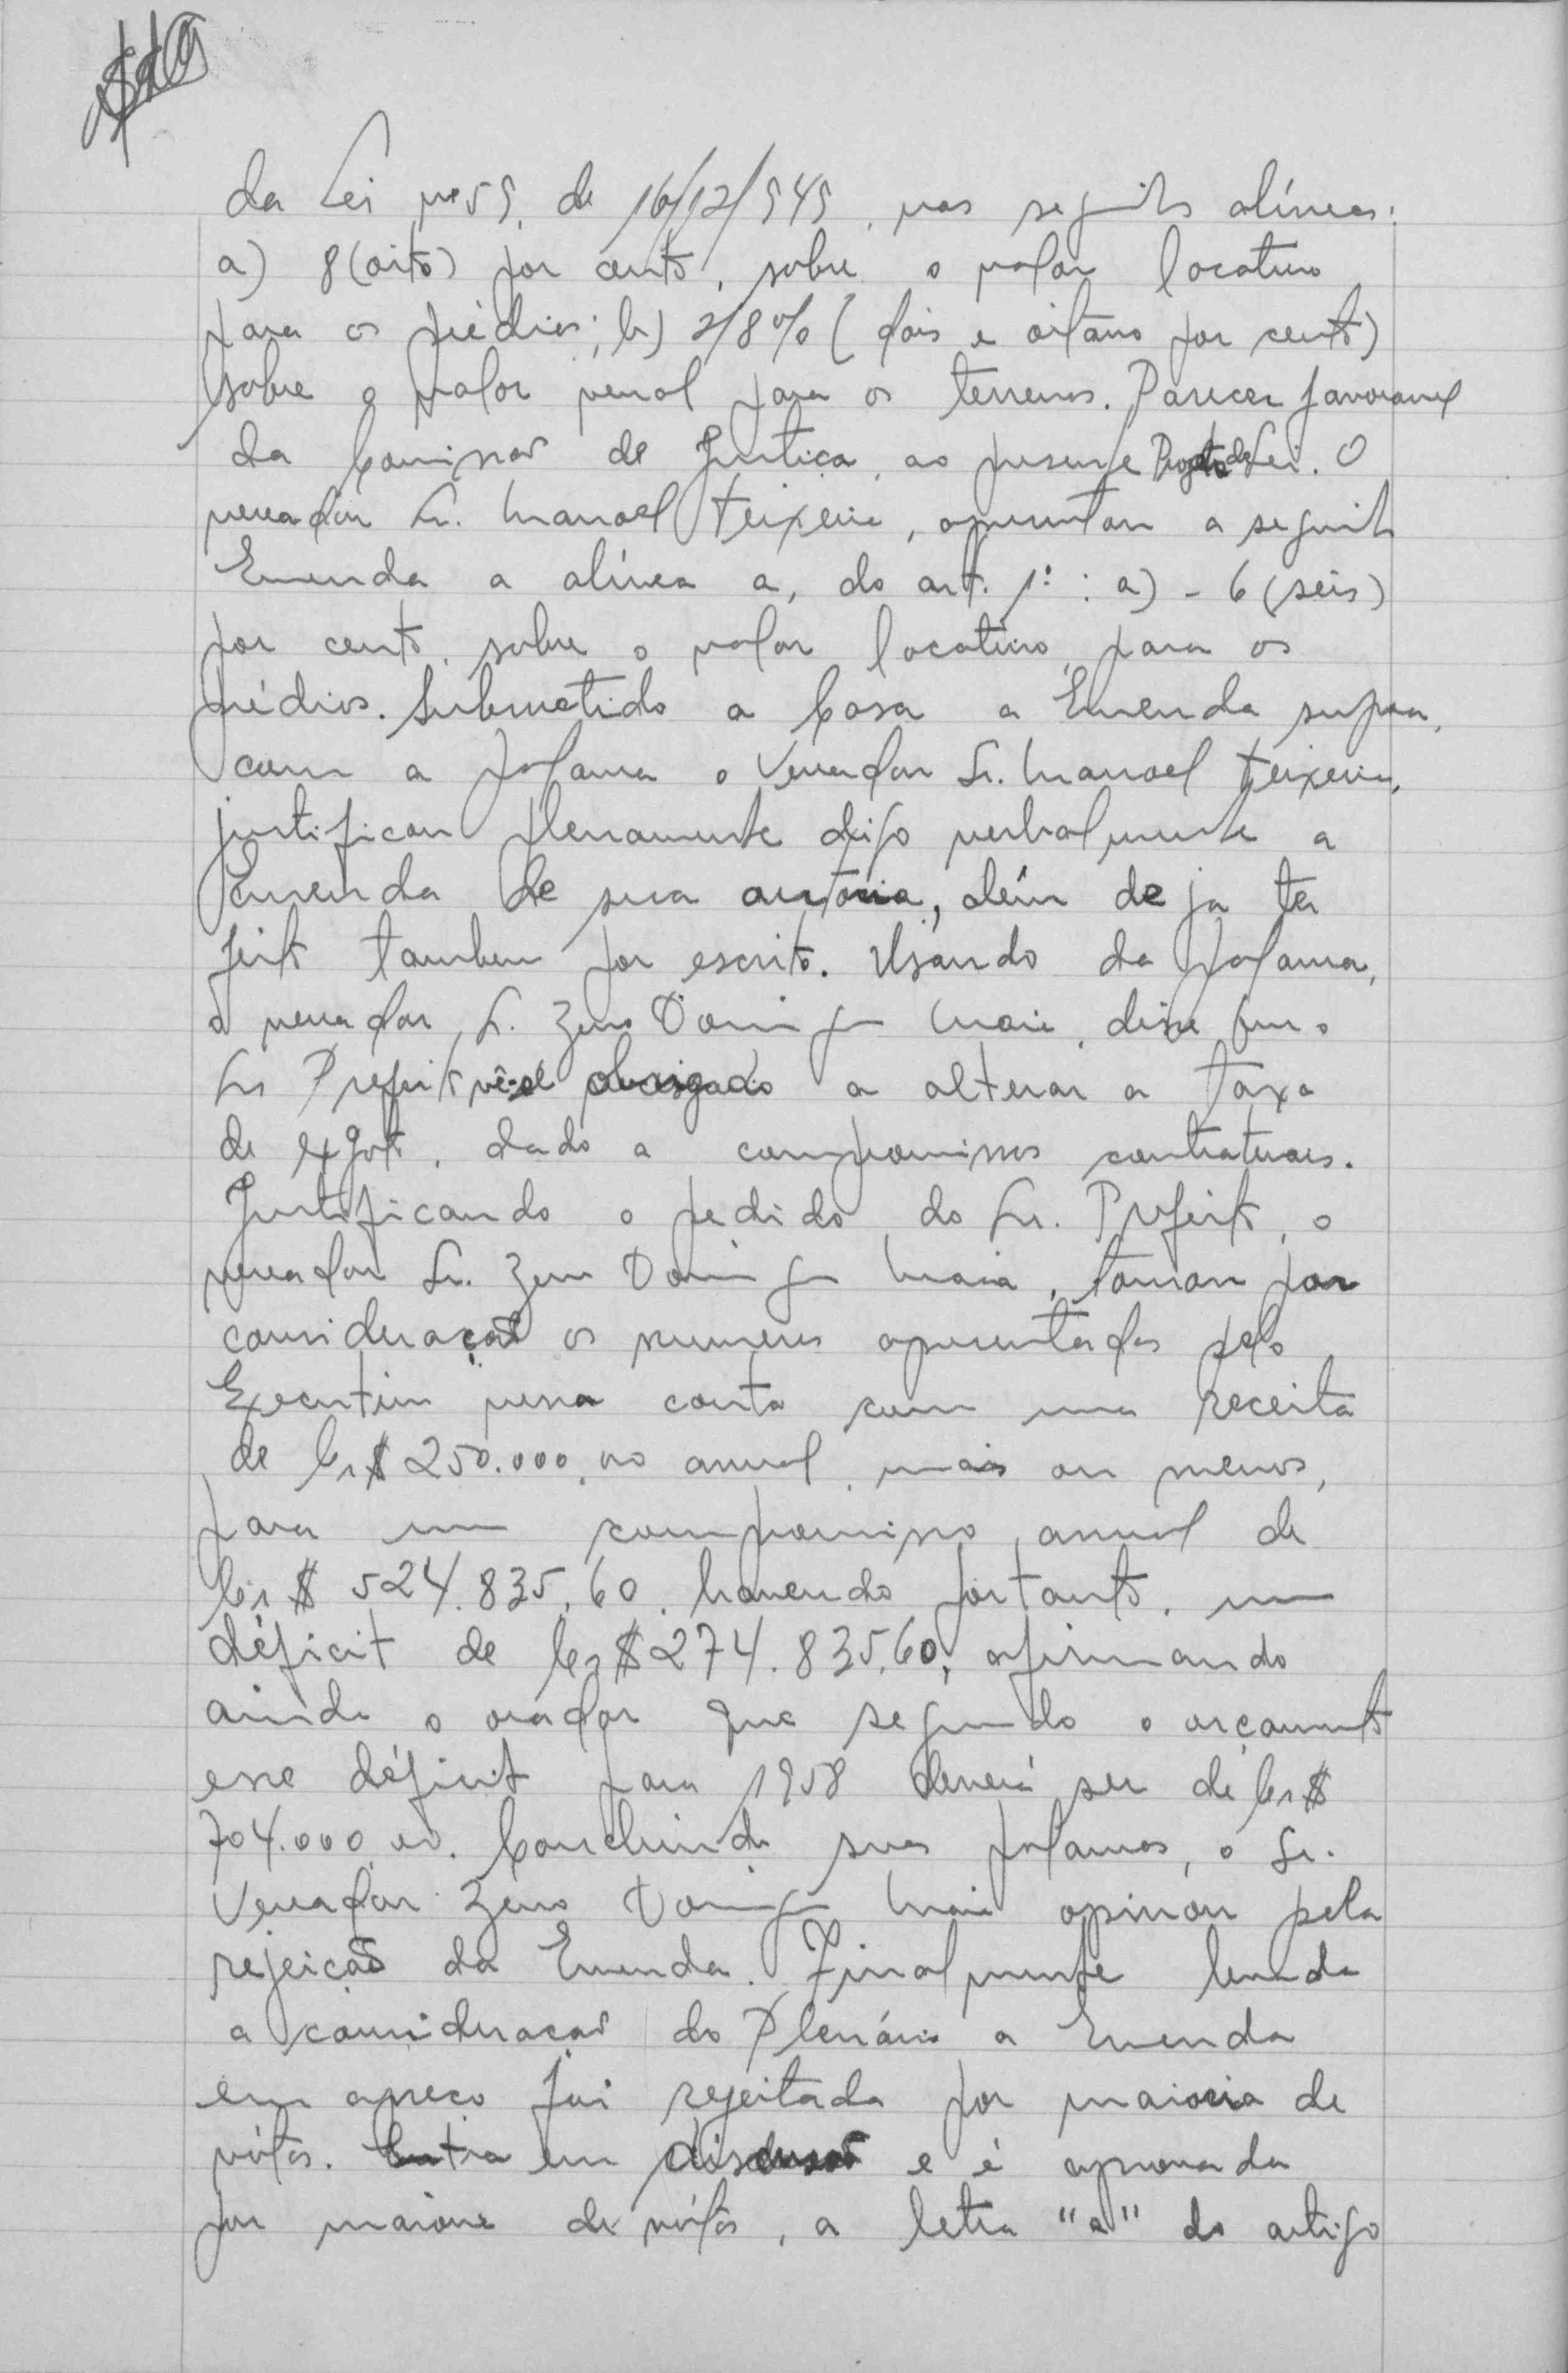 da Lei nº 59, de 16/12/949, nas seguints alíneas:
a) 8 (oito) por cento, sobre o valor locativo
para os prédios; b) 2/8% (dois e oitavo por cento)
sobre o valor venal para os terrenos. Parecer favoravel
da Comissão de Justiça, ao presente Projeto de Lei. O
vereador Sr. Manoel Teixeira, apresentou a seguinte
Emenda a alínea a, do art. 1º: a) - 6 (seis)
por cento, sobre o valor locativo, para os
prédios. Submetido a Casa a Emenda supra,
com a palavra o Vereador Sr. Manoel Teixeira,
justificou plenamente digo verbalmente a
Emenda de sua autoria, além de ja ter
feito tambem por escrito. Usando da palavra,
o vereador, Sr. Zeno Domingos Maia, disse que o
Sr. Prefeito vê-se obrigado a alterar a taxa
de exgoto, dado a compromissos contratuaes.
Justificando o pedido do Sr. Prefeito, o
vereador Sr. Zeno Domingos Maia, tomou por
consideração os numeros apresentados pelo
Executivo conta com uma receita
de Cr$ 250.000,00 anual, mais ou menos,
para um compromisso anual de
Cr$ 524.835,60, havendo portanto, um
déficit de Cr$ 274.835,60, afirmando
ainda o orador que segundo o orçamento
esse déficit para 1958 deverá ser de Cr$
704.000,00. Concluindo suas palavras, o Sr.
Vereador Zeno Domingos Maia opinou pela
rejeição da Emenda. Finalmente levada
a consideração do Plenário a Emenda
em apreço foi rejeitada por maioria de
vótos. Entra em discussão e é aprovada
por maioria de vótos, a letra "a" do artigo